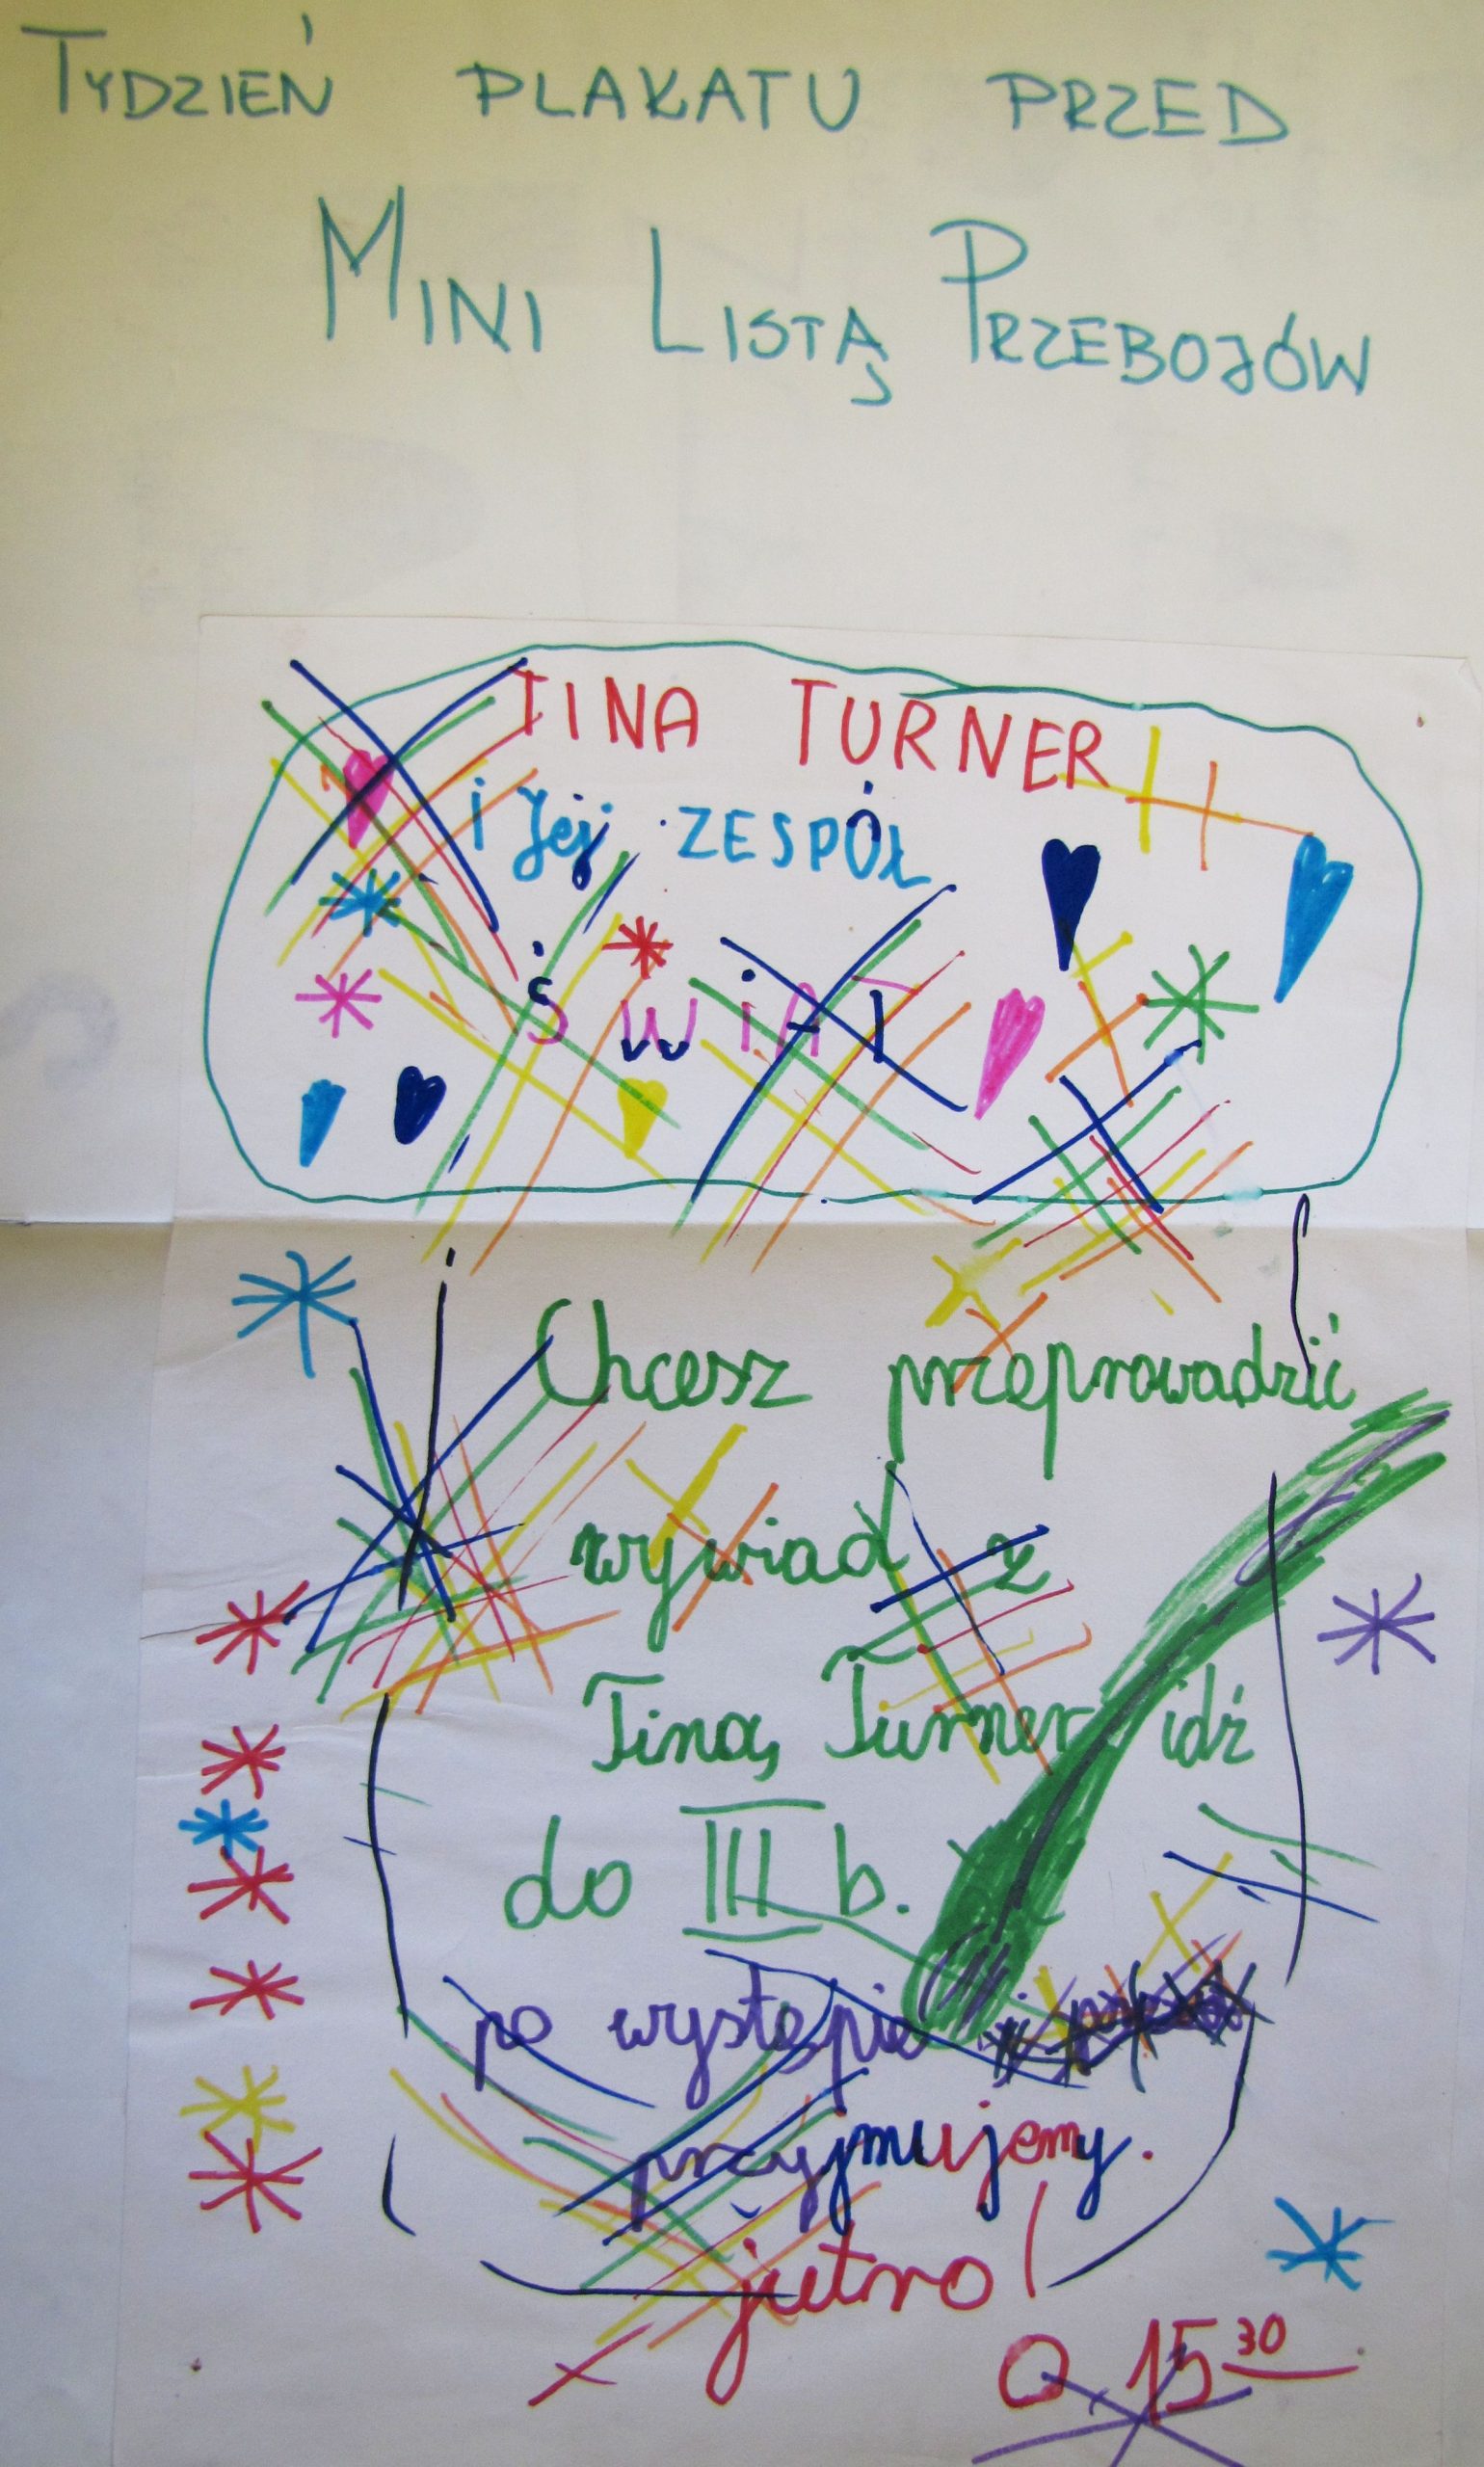 TYDZIEŃ PLAKATU PRZED
MINI LISTĄ PRZEBOJÓW
TINA TURNER
i Jej ZESPÓŁ
ŚWiAT
Chcesz przeprowadzić
wywiad z
Tiną Turner idź
do III b.
po występie
przyjmujemy.
jutro!
O 15 30